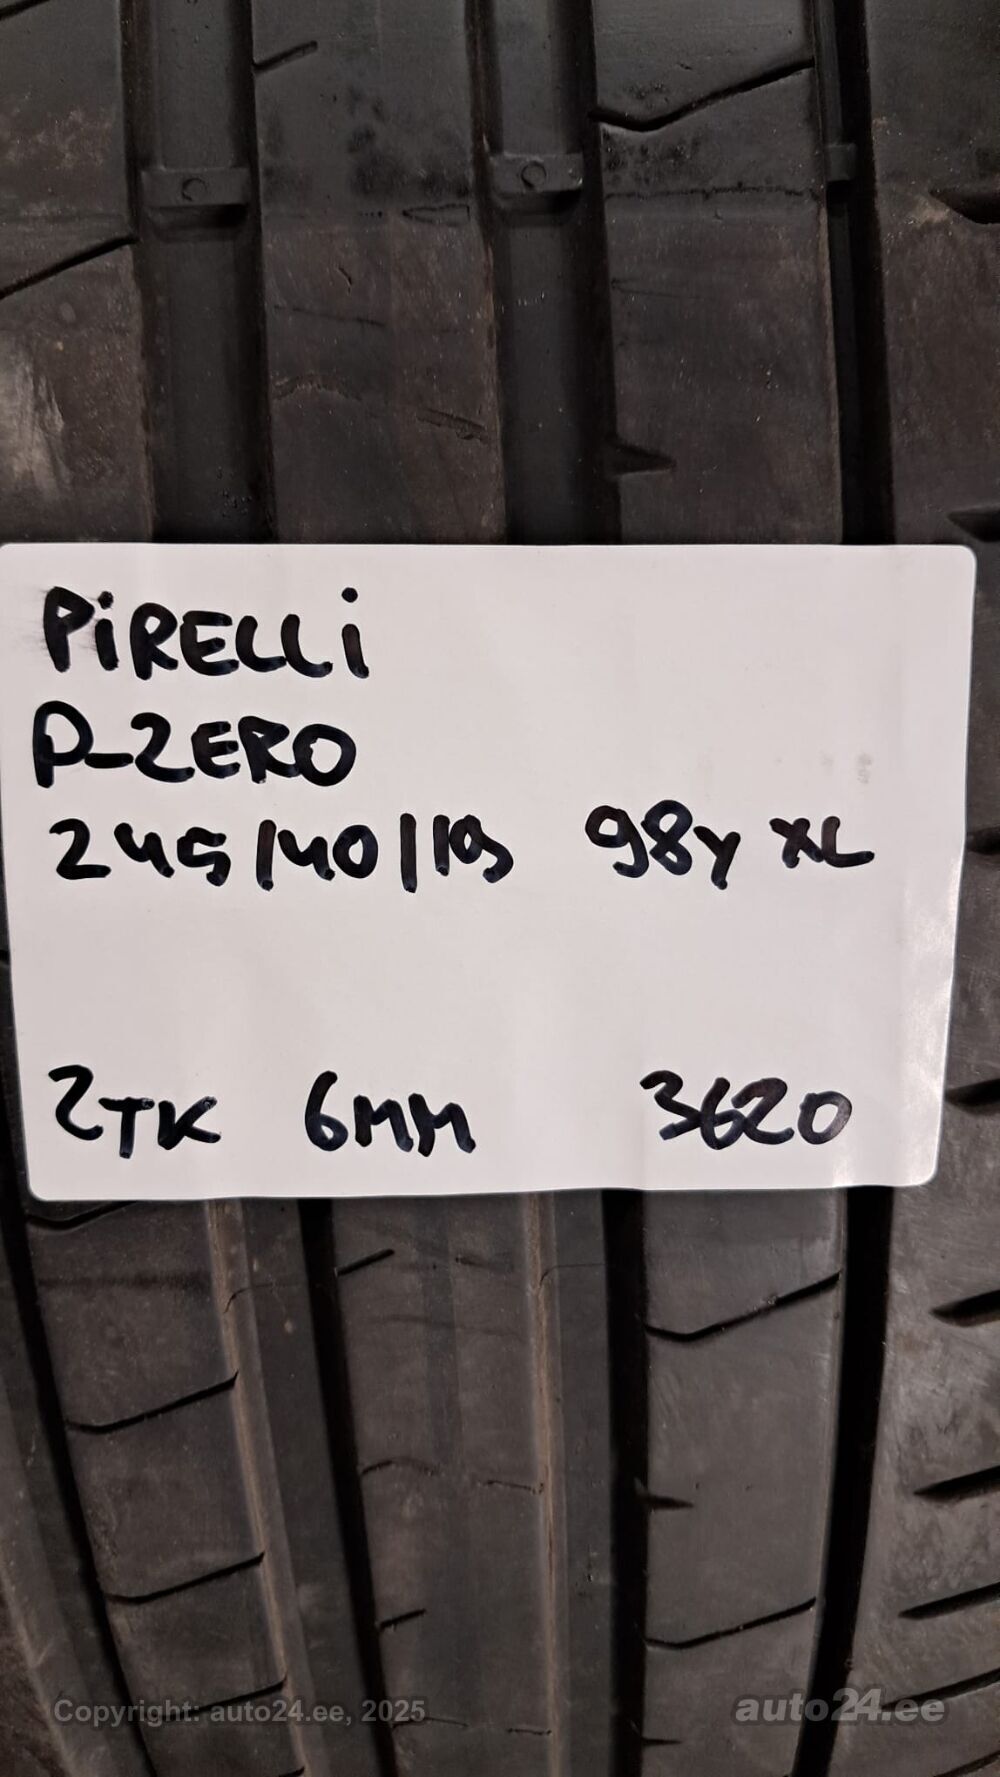 PiRELLi
P-ZERO
245/40/19 98y XL
2TK 6MM 3620
Copyright: auto24.ee, 2025
auto24.ee